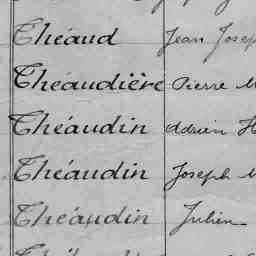 Théaud Jean Josep
Théaudière Pierre M
Théaudin Adrien H
Théaudin Joseph M
Théaudin Julien